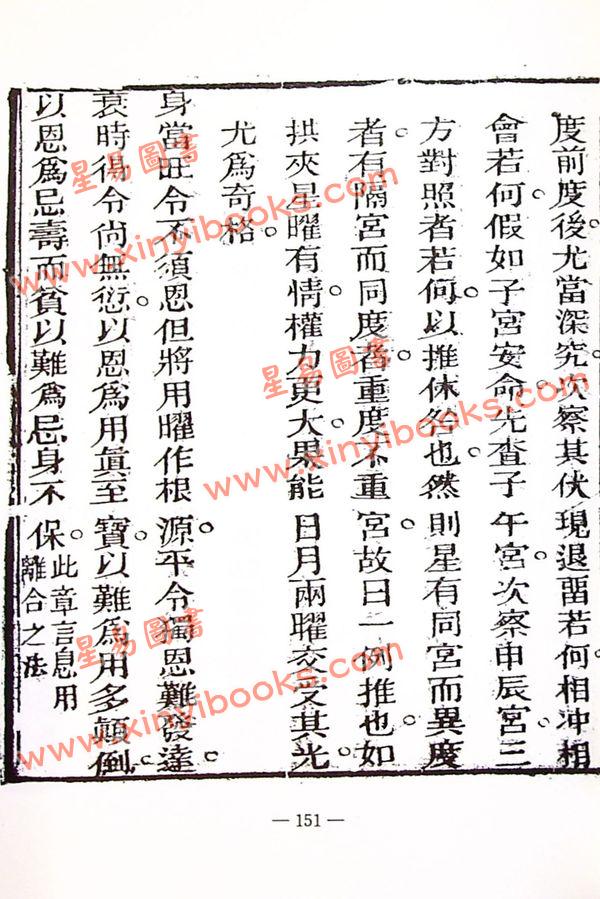 度前度後。尤當深究。次察其伏現退留若何。相冲相
會若何。假如子宮安命。先查子午宮。次察申辰宮。三
方對照者若何。以推休咎也。然則星有同宮而異度
者。有隔宮而同度者。重度不重宮。故曰一例推也。如
拱夾星曜有情。權力更大。果能日月兩曜交受其光。
尤爲奇格。
身當旺令不須恩但將用曜作根源。平令獨恩難發達。
衰時得令尚無愆。以恩爲用眞至寶。以難爲用多顛倒。
以恩爲忌壽而貧。以難爲忌身不保。此章言恩用
離合之法
— 151 —
星易圖書
www.xinyibooks.com
星易圖書
www.xinyibooks.com
星易圖書
www.xinyibooks.com